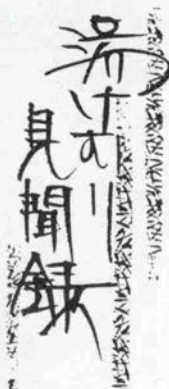 湯けむり
見聞録